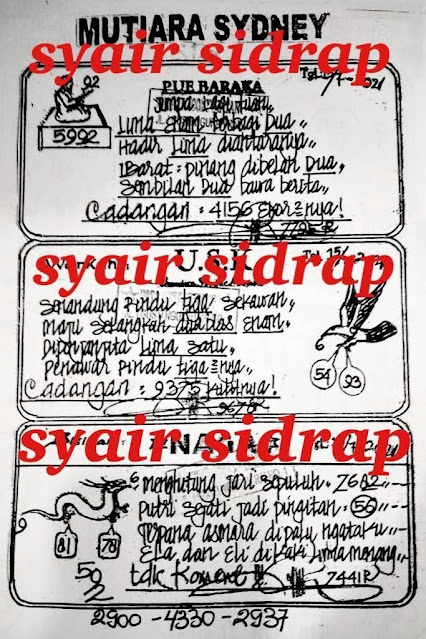 MUTIARA SYDNEY
syair sidrap
92
5992
PUE BARAKA
Jumpa lagi tuan
Lima enam berbagi Dua
Hadir Lima diantaranya
Ibarat pinang dibelah Dua
Sembilan Dua bawa berita
Cadangan : 4156 Ekornya!
syair sidrap
U.S.
Senandung rindu tiga sekawan
maju selangkah enam
Lima satu
Penawar rindu tiga nya
Cadangan : 9375
54 93
syair sidrap
6 menghitung jari sepuluh. 7602
putri sejati jadi pingitan. 56
asmara dipalu
Ela dan Eli di kaki lima
81 78
50/2
tdk Koment
7441R
2900 - 4330 - 2937